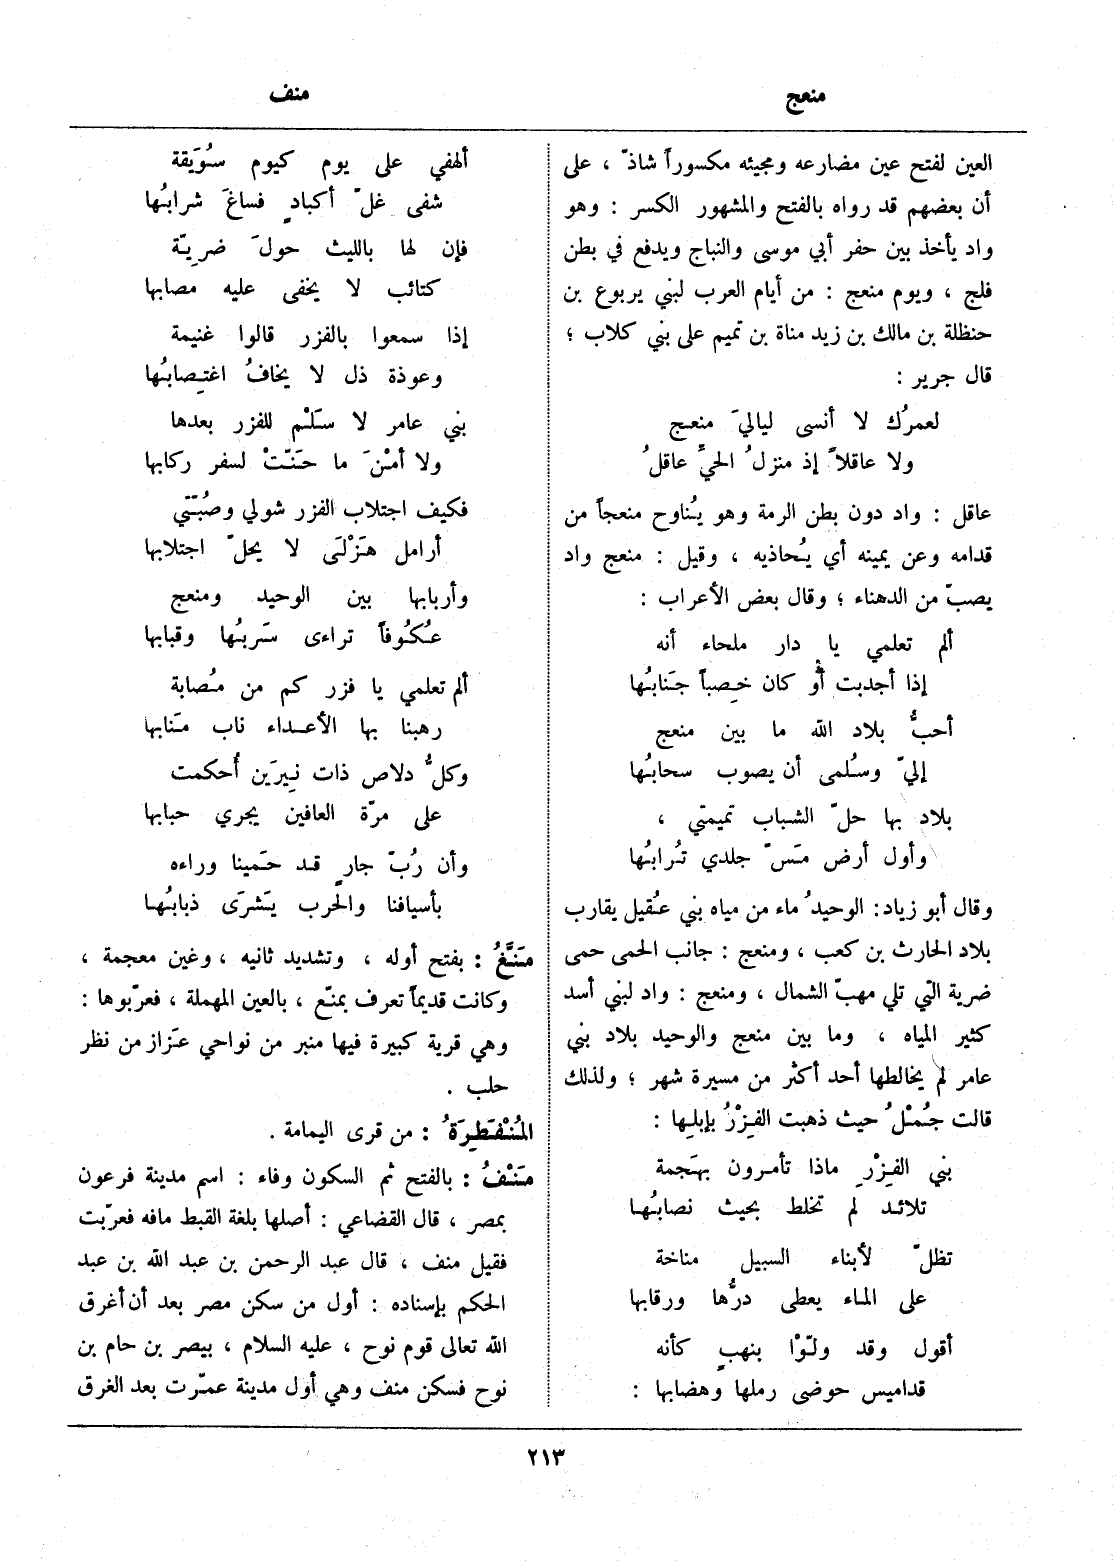 منعج
منف
العين لفتح عين مضارعه ومجيئه مكسوراً شاذّ ، على
أن بعضهم قد رواه بالفتح والمشهور الكسر : وهو
واد يأخذ بين حفر أبي موسى والنباج ويدفع في بطن
فلج ، ويوم منعج : من أيام العرب لبني يربوع بن
حنظلة بن مالك بن زيد مناة بن تميم على بني كلاب ؛
قال جرير :
لعمرُك لا أنسى ليالي منعج
ولا عاقلاً إذ منزلُ الحيّ عاقلُ
عاقل : واد دون بطن الرمة وهو يُناوح منعجاً من
قدامه وعن يمينه أي يُحاذيه ، وقيل : منعج واد
يصبّ من الدهناء ؛ وقال بعض الأعراب :
ألم تعلمي يا دار ملحاء أنه
إذا أجدبت أو كان خصباً جَنابُها
أحبُّ بلاد الله ما بين منعج
إليّ وسُلمى أن يصوب سحابُها
بلاد بها حلّ الشباب تميمتي ،
وأول أرض مَسّ جلدي تُرابُها
وقال أبو زياد: الوحيدُ ماء من مياه بني عُقيل يقارب
بلاد الحارث بن كعب ، ومنعج : جانب الحمى حمى
ضرية التي تلي مهبّ الشمال ، ومنعج : واد لبني أسد
كثير المياه ، وما بين منعج والوحيد بلاد بني
عامر لم يخالطها أحد أكثر من مسيرة شهر ؛ ولذلك
قالت جُمْلُ حيث ذهبت الفِزْرُ بإبلِها :
بني الفِزْرِ ماذا تأمرون بهَجمة
تلائد لم تخلط بحيث نصابُها
تظلّ لأبناء السبيل مناخة
على الماء يعطى درُّها ورقابها
أقول وقد ولّوْا بنهبٍ كأنه
قداميس حوضى رملها وهضابها :
ألهفي على يوم كيوم سُوَيقة
شفى غلّ أكبادٍ فساغَ شرابُها
فإن لها بالليث حولَ ضريّة
كتائب لا يخفى عليه مصابها
إذا سمعوا بالفزر قالوا غنيمة
وعوذة ذل لا يخافُ اغتصابُها
بني عامر لا سَلْم للفزر بعدها
ولا أمْنَ ما حَنّتْ لسفر ركابها
فكيف اجتلاب الفزر شولي وصُبّتي
أرامل هَزْلَى لا يحلّ اجتلابها
وأربابها بين الوحيد ومنعج
عُكُوفاً تراءى سَربُها وقبابها
ألم تعلمي يا فزر كم من مُصابة
رهبنا بها الأعداء ناب مَنابها
وكلُّ دلاص ذات نِيرَين أُحكمت
على مرّة العافين يجري حبابها
وأن رُبّ جارٍ قد حَمينا وراءه
بأسيافنا والحَرب يَشرَى ذبابُها
مَنَّغُ : بفتح أوله ، وتشديد ثانيه ، وغين معجمة ،
وكانت قديماً تعرف بمنّع ، بالعين المهملة ، فعرّبوها :
وهي قرية كبيرة فيها منبر من نواحي عَزاز من نظر
حلب .
المُنْفَطِرَةُ : من قرى اليمامة .
مَنْفُ : بالفتح ثم السكون وفاء : اسم مدينة فرعون
بمصر ، قال القضاعي : أصلها بلغة القبط مافه فعرّبت
فقيل منف ، قال عبد الرحمن بن عبد الله بن عبد
الحكم بإسناده : أول من سكن مصر بعد أن أغرق
الله تعالى قوم نوح ، عليه السلام ، بيصر بن حام بن
نوح فسكن منف وهي أول مدينة عمّرت بعد الغرق
٢١٣